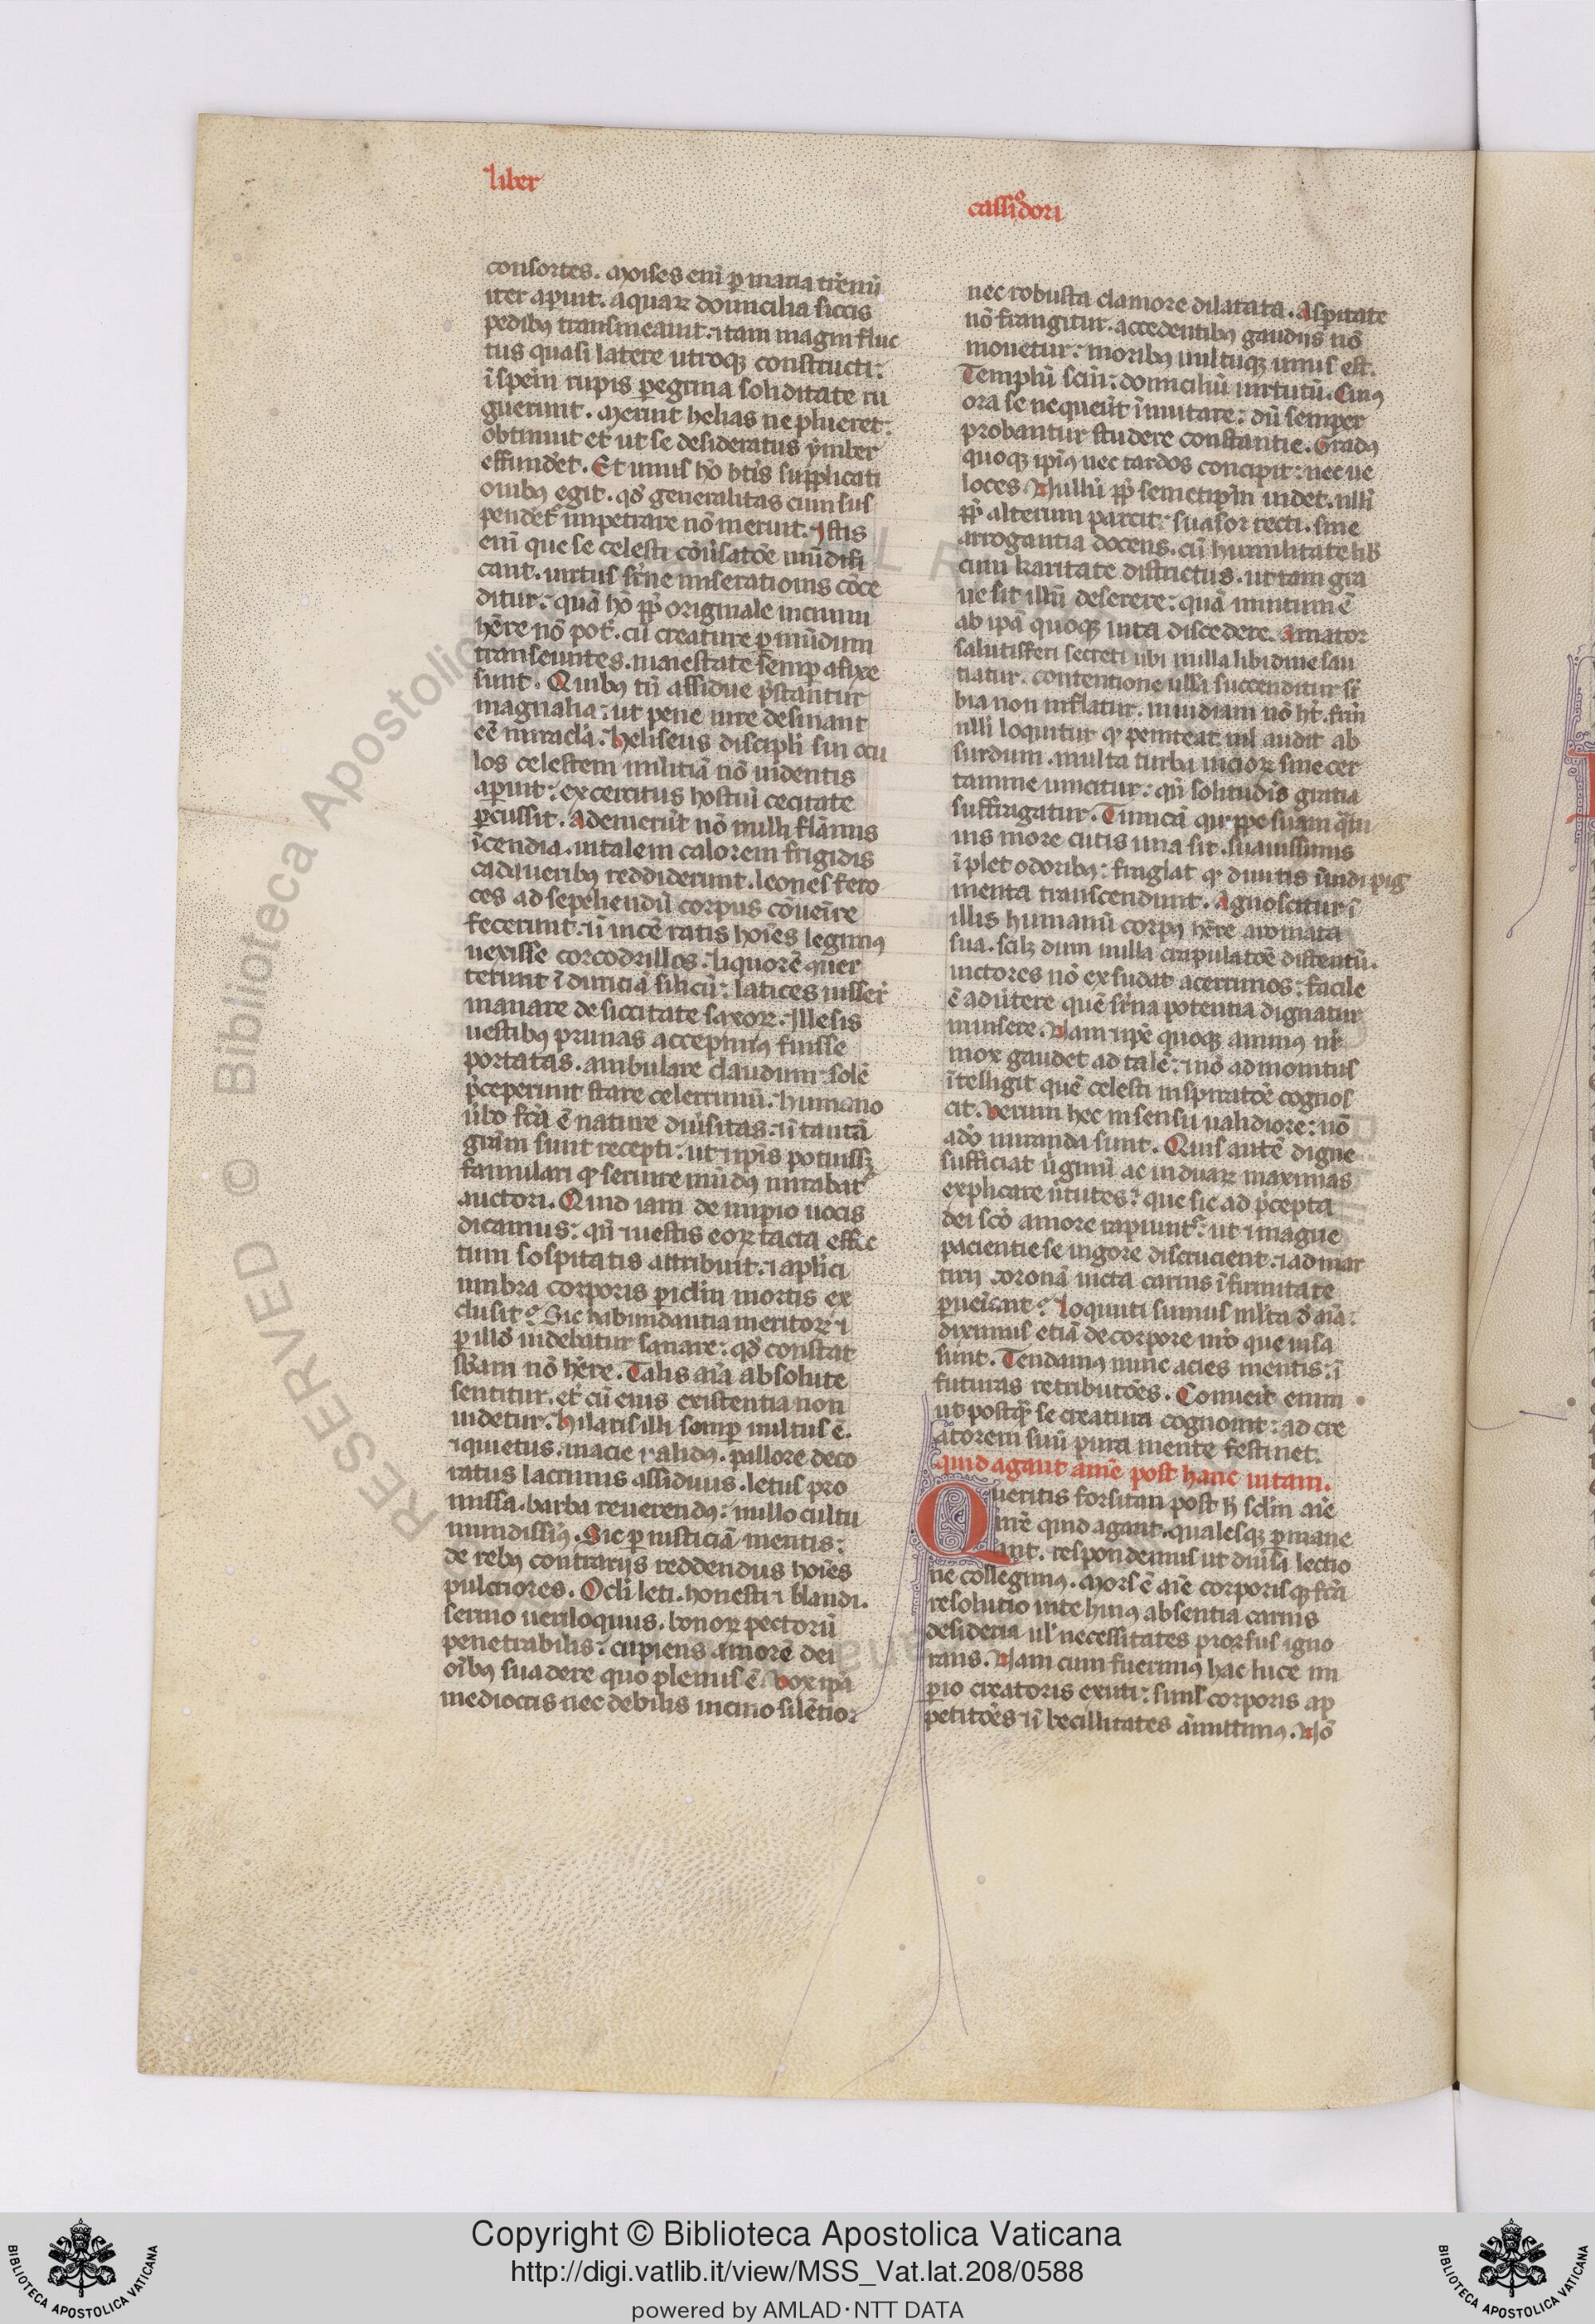 liber
cassiodori
consortes. Moises eni͂ ꝑ maria trẽnũ
iter aꝑuit. aquaꝝ domicilia siccis
pedibꝰ transmeauit. ⁊ tam magni fluc
tus quasi latere utroqꝫ constructi:
ĩ spẽm rupis ꝑegrina soliditate ri
guerunt. Meruit helias ne plueret:
obtinuit et ut se desideratus ymber
effunderet. Et unius hõ btĩs supplicati
onibꝰ egit. qd̾ generalitas cum sus
penderet̾ impetrare nõ meruit. Istis
eni͂ que se celesti cõu̾satõe mũdifi
cant. uirtus sr̃ne miserationis cõce
ditur: quã hõ ꝓp̃ originale uicium
hẽre nõ pot̾. cũ creature ꝑ mũdum
transeuntes. maiestate semꝑ afixe
sunt. Quibꝰ tñ assidue p̃stantur
magnalia: ut pene iure desinant
eẽ miracl̃a. heliseus discipl̃i sui ocu
los celestem militiã nõ uidentis
aꝑuit: excercitus hostiũ cecitate
ꝑcussit. Ademer̃t nõ nulli flãmis
ĩcendia. uitalem calorem frigidis
cadaueribꝰ reddiderunt. leones fero
ces ad sepeliendũ corpus cõuenire
fecerunt. ĩ uicẽ ratis hoĩes legimꝰ
uexisse corcodrillos. liquorẽ uer
terunt ĩ duriciã silicũ: latices iusser̃
manare de siccitate saxoꝝ. Illesis
uestibꝰ prunas accepimꝰ fuisse
portatas. ambulare claudum: solẽ
p̃ceperunt stare celerrimũ. humano
u̾bo fc̃a ẽ nature diu̾sitas. ĩ tantã
grãm sunt recepti: ut ipĩs potuissꝫ
famulari q̃ seruire mũdꝰ mirabat̾
auctori. Quid iam de impio uocis
dicamus: qñ ⁊ uestis eoꝝ tacta effec
tum sospitatis attribuit. ⁊ apl̃ici
umbra corporis ꝑicl̃m mortis ex
clusit? Sic habundantia meritoꝝ ⁊
ꝑ illd̾ uidebatur sanare: qd̾ constat
sb̃am nõ hẽre. Talis aĩa absolute
sentitur. et cũ eius existentia non
uidetur. hilaris illi semꝑ uultus ẽ.
⁊ quietus. macie ualidꝰ. pallore deco
ratus lacrimis assiduus. letus pro
missa. barba reuerendꝰ: nullo cultu
mundissimꝰ. Sic ꝑ iusticiã mentis:
de rebꝰ contrarijs reddendus hoĩes
pulcriores. Ocl̃i leti. honesti ⁊ blandi.
sermo ueriloquus. bonoꝝ pectorũ
penetrabilis: cupiens amorẽ dei
oĩbꝰ suadere quo plenus ẽ. Vox ipã
mediocris nec debilis uicino silẽtio:
nec robusta clamore dilatata. Asperitate
nõ frangitur. accedentibꝰ gaudijs nõ
mouetur: moribꝰ uultuqꝫ unus est.
Templũ scũm: domiciliũ uirtutũ. Cuiꝰ
ora se nequeũt ĩmutare: dũ semper
probantur studere constantie. Gradꝰ
quoqꝫ ipĩꝰ nec tardos concipit: nec ue
loces. Nullũ ꝓp̃ semetipm̃ uidet. ull̃i
ꝓp̃ alterum parcit: suasor recti. sine
arrogantia docens. cũ humilitate lib̾
cum karitate districtus. ut tam gra
ue sit illũ deserere: quã inuitum ẽ
ab ipã quoqꝫ uita discedere. Amator
salutiferi secreti ubi nulla libidine sau
tiatur. contentione ulla succenditur su̾
bia non inflatur. inuidiam nõ ht̾. frĩ
ull̃i loquitur q̃ peniteat. nil audit ab
surdum. multa turba uicioꝝ sine cer
tamine uincitur: qñ solitudĩs gratia
suffragatur. Tunicã quippe suam q̃m
uis more cutis una sit. suauissimis
ĩplet odoribꝰ: fraglat q̃ diuitis ĩndi pig
menta transcendunt. Agnoscitur ĩ
illis humanũ corpꝰ hẽre aromata
sua. scilꝫ dum nulla crapulatõe distentũ.
nictores nõ exsudat acerrimos: facile
ẽ adu̾tere quẽ sr̃na potentia dignatur
inuisere. Nam ⁊ ipẽ quoqꝫ animꝰ nr̃
mox gaudet ad talẽ: ⁊ nõ admonitus
ĩtelligit quẽ celesti inspiratõe cognos
cit. Verum hec in sensu ualidiore: nõ
adõ miranda sunt. Quis autẽ digne
sufficiat u̾ginũ ac uiduaꝝ maximas
explicare u̾tutes: que sic ad p̃cepta
dei scõ amore rapiunt̾: ut ⁊ magne
pacientie se uigore discrucient. ⁊ ad mar
tirij coronã uicta carnis ĩfirmitate
ꝑueniãt? Loquuti sumus ml̃ta d̾ aĩa:
diximus etiã de corpore nr̃o que uisa
sunt. Tendamꝰ nunc acies mentis: ĩ
futuras retributões. Conuenit enim
ut postq̃ se creatura cognouit: ad cre
atorem suũ pura mente festinet.
quid agant anĩe post hanc uitam.
Queritis forsitan post h̾ sc̃lm aĩe
nr̃e quid agant. qualesqꝫ ꝑmane
ant. respondemus ut diu̾sa lectio
ne collegimꝰ. Mors ẽ aĩe corporisqꝫ fc̃a
resolutio ⁊ uite huiꝰ absentia carnis
desideria ul̃ necessitates prorsus igno
rans. Nam cum fuerimꝰ hac luce im
ꝑio creatoris exuti: siml̃ corporis ap
petitões ⁊ ĩbecillitates amittimꝰ. Nõ
RESERVED © Biblioteca Apostolica
Copyright © Biblioteca Apostolica Vaticana
http://digi.vatlib.it/view/MSS_Vat.lat.208/0588
powered by AMLAD·NTT DATA
BIBLIOTECA APOSTOLICA VATICANA
BIBLIOTECA APOSTOLICA VATICANA